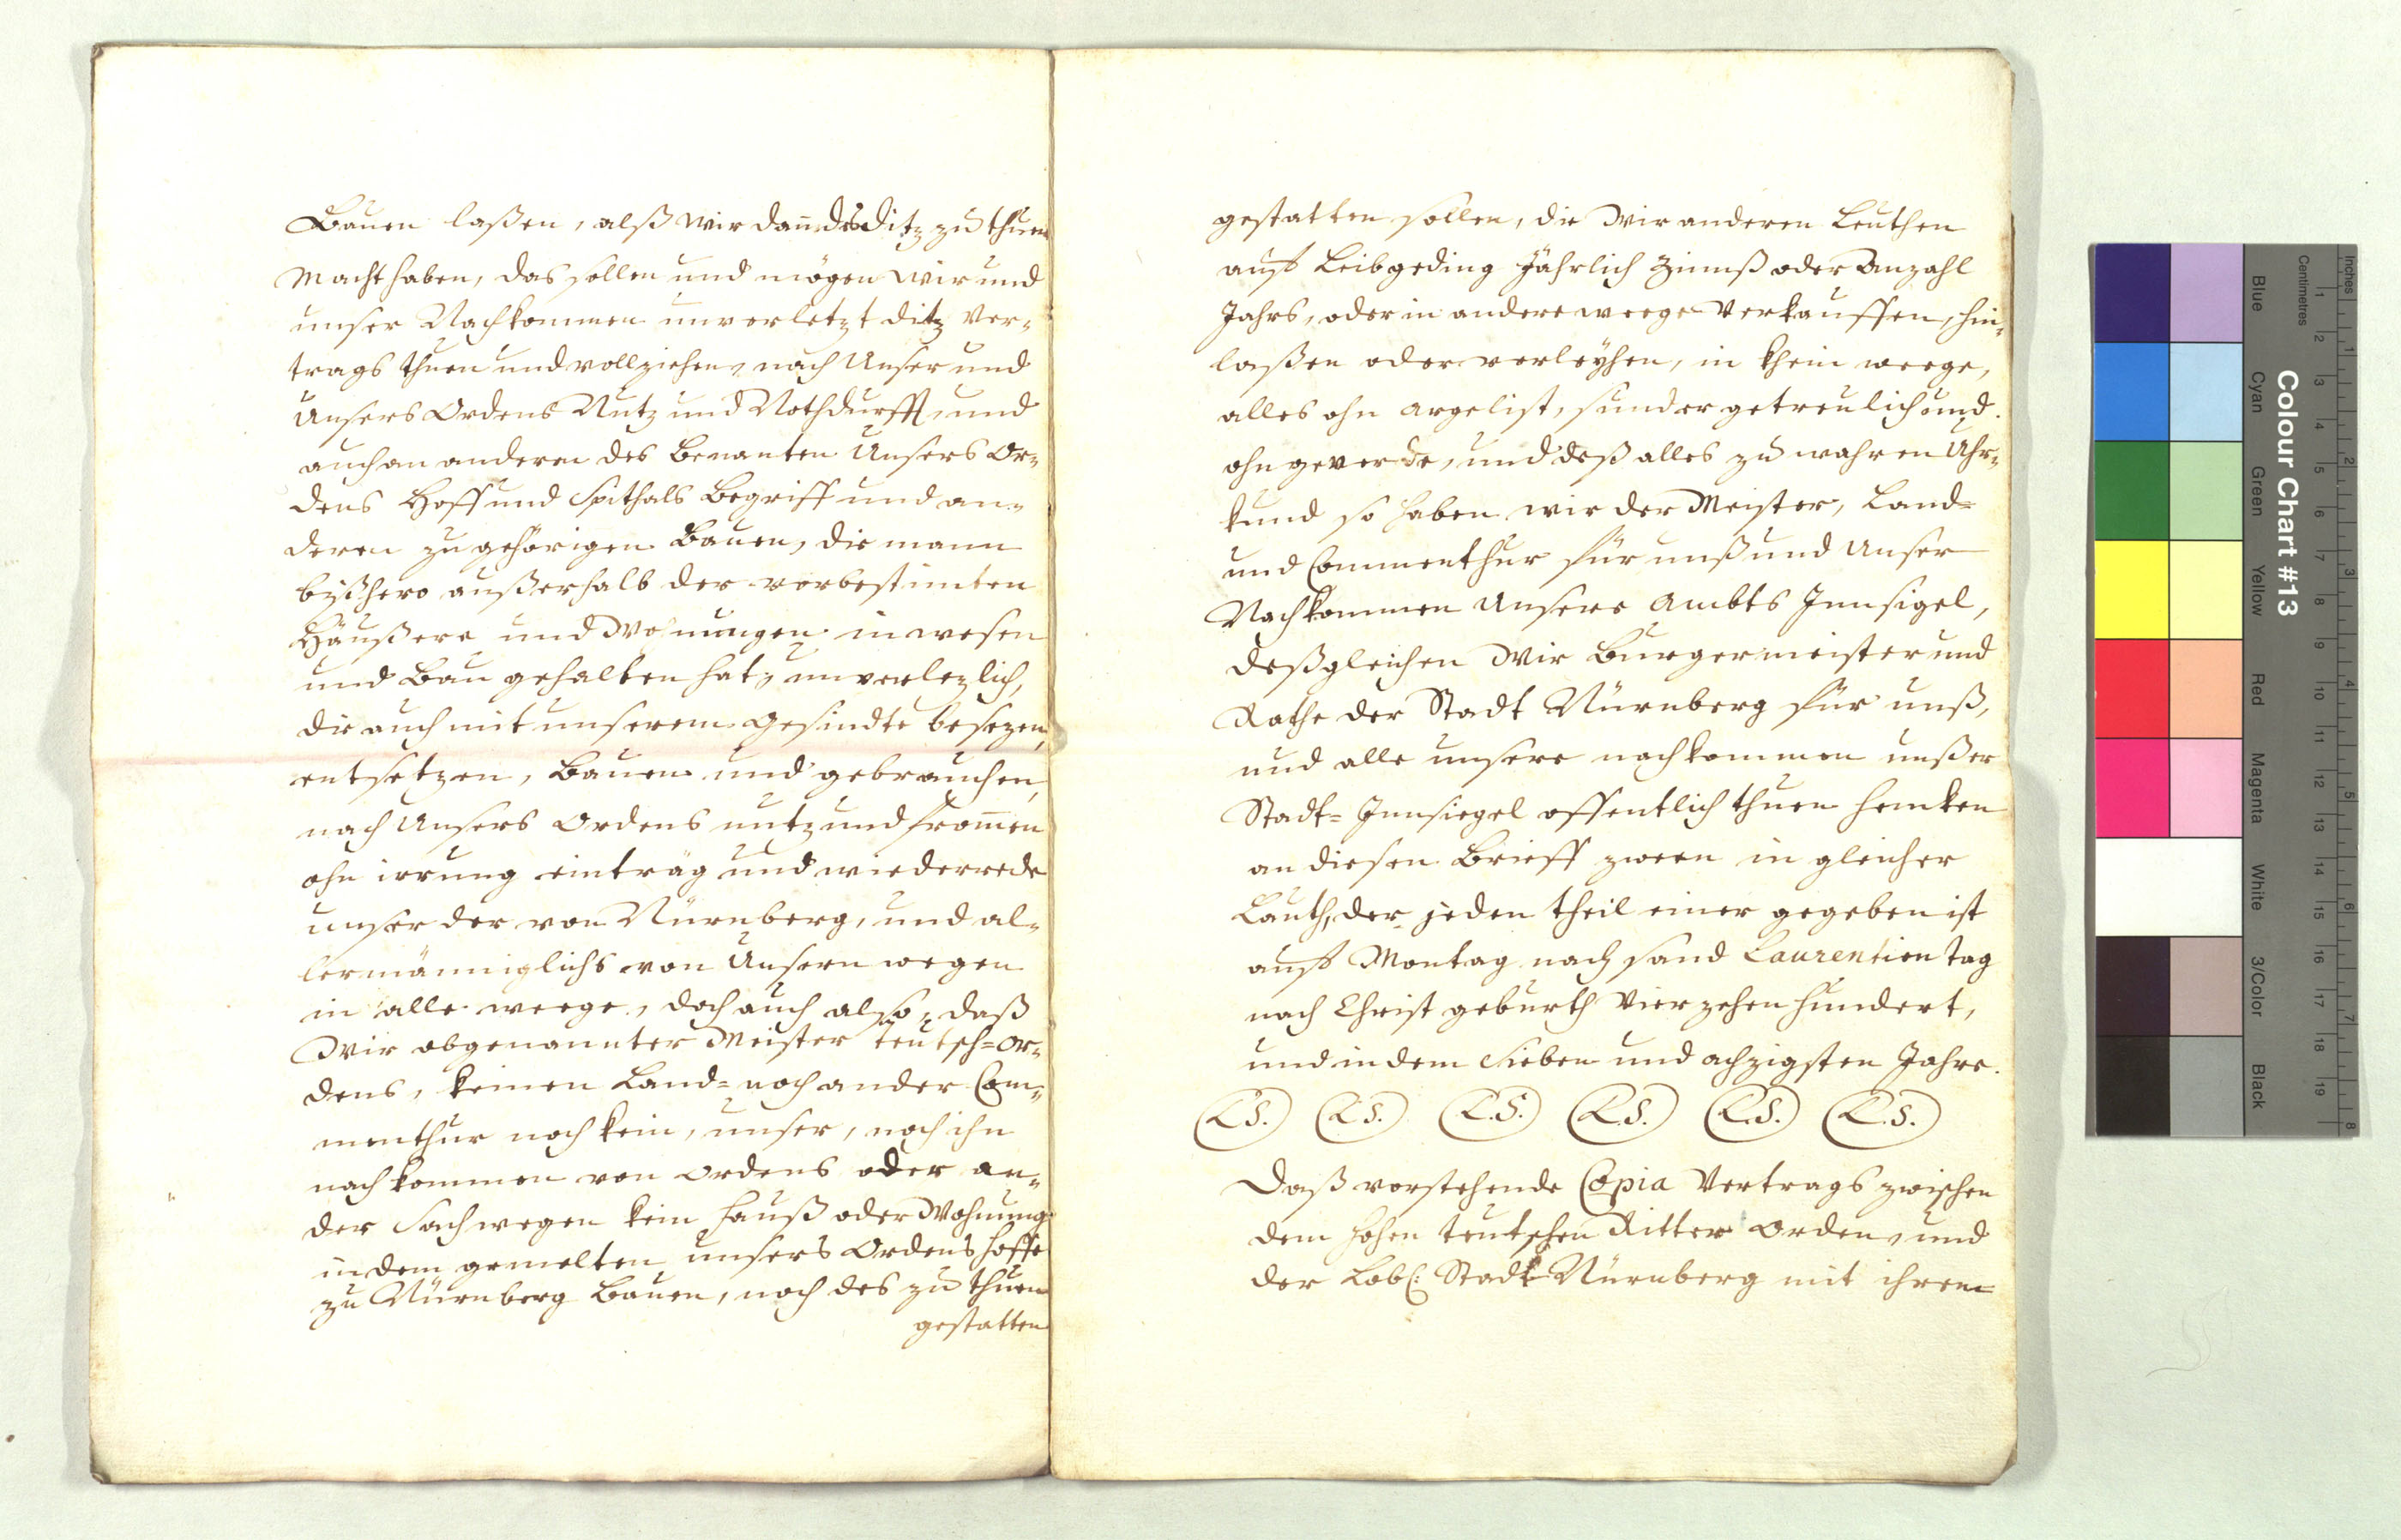 Bauen laßen, alß wir dann des ditz zu thuen
Macht haben, das sollen und mögen wir und
unser Nachkommen unverletzt ditz Ver-
trags thuen und vollziehen, nach Unser und
Unsers Ordens Nutz und Nothdurfft, und
auch an anderen des benanten Unsers Or-
dens Hoff und Spithals Begriff und an-
deren zugehörigen Bauen, die mann
bißhero außerhalb der vorbestimten
Häußere und Wonungen in wesen
und Bau gehalten hat, unverlezlich,
die auch mit unserem Gesindte besezen,
entsetzen, Bauen und gebrauchen,
nach Unsers Ordens nutz und frommen
ohn irrung einträg und wiederrede
unser der von Nürnberg, und al-
lermänniglichs von Unsern wegen
in alle weege, doch auch also, daß
Wir obgenannter Meister teutsch-Or-
dens, keinen Land- noch ander Com-
menthur noch kein, unser, noch ihn
nachkommen von Ordens oder an-
der Sach wegen kein Hauß oder Wohnung
in dem gemelten unsers Ordens Hoffe
zu Nürnberg Bauen, noch des zu thuen
gestatten
gestatten sollen, die Wir anderen Leuthen
auff Leibgeding Jährlich Zinnß oder Anzahl
Jahrs, oder in andere weege Verkauffen, hin-
laßen oder verleyhen, in khein weege,
alles ohn argelist, sunder getreulich und
ohn geverde, und deß alles zu wahren Uhr-
kund so haben wir der Meister, Land-
und Commenthur für unß und Unser
Nachkommen Unsere Ambts Innsigel,
deßgleichen Wir Burgermeister und
Rathe der Stadt Nürnberg für unß,
und alle unsere nachkommen unßer
Stadt-Innsiegel offentlich thuen henken
an diesen Brieff zween in gleicher
Lauth, der jeden theil einer gegeben ist
auff Montag nach sand Laurentien tag
nach Christ geburth Vierzehen hundert,
und in dem Sieben und achzigsten Jahre.
L.S. L.S. L.S. L.S. L.S. L.S.
Daß vorstehende Copia Vertrags zwischen
dem hohen teutschen Ritter Orden, und
der Löbl: Stadt Nürnberg mit ihrem
Colour Chart #13
Blue Cyan Green Yellow Red Magenta White 3/Color Black
Centimetres 1 2 3 4 5 6 7 8 9 10 11 12 13 14 15 16 17 18 19
Inches 1 2 3 4 5 6 7 8